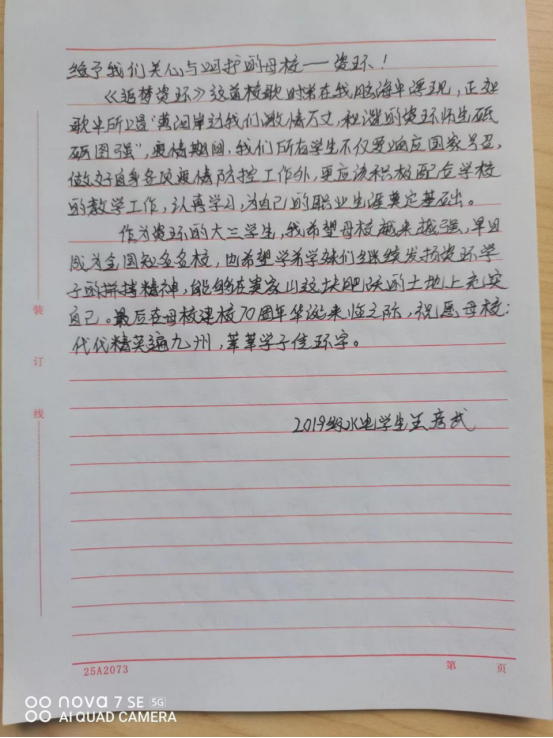 给予我们关心与呵护的母校——资环！
《追梦资环》这首校歌时常在我脑海中浮现，正如
歌中所唱"黄河岸边我们激情万丈，和谐的资环师生砥
砺图强"，疫情期间，我们所有学生不仅要响应国家号召，
做好自身各项疫情防控工作外，更应该积极配合学校
的教学工作，认真学习，为自己的职业生涯奠定基础。
作为资环的大三学生，我希望母校越来越强，早日
成为全国知名名校，也希望学弟学妹们继续发扬资环学
子的拼搏精神，能够在窦家山这块肥沃的土地上充实
自己。最后在母校建校70周年华诞来临之际，祝愿母校：
代代精英遍九州，莘莘学子佳环宇。
2019级水电学生王彦武
装
订
线
25A2073
第 页
nova 7 SE 5G
AI QUAD CAMERA